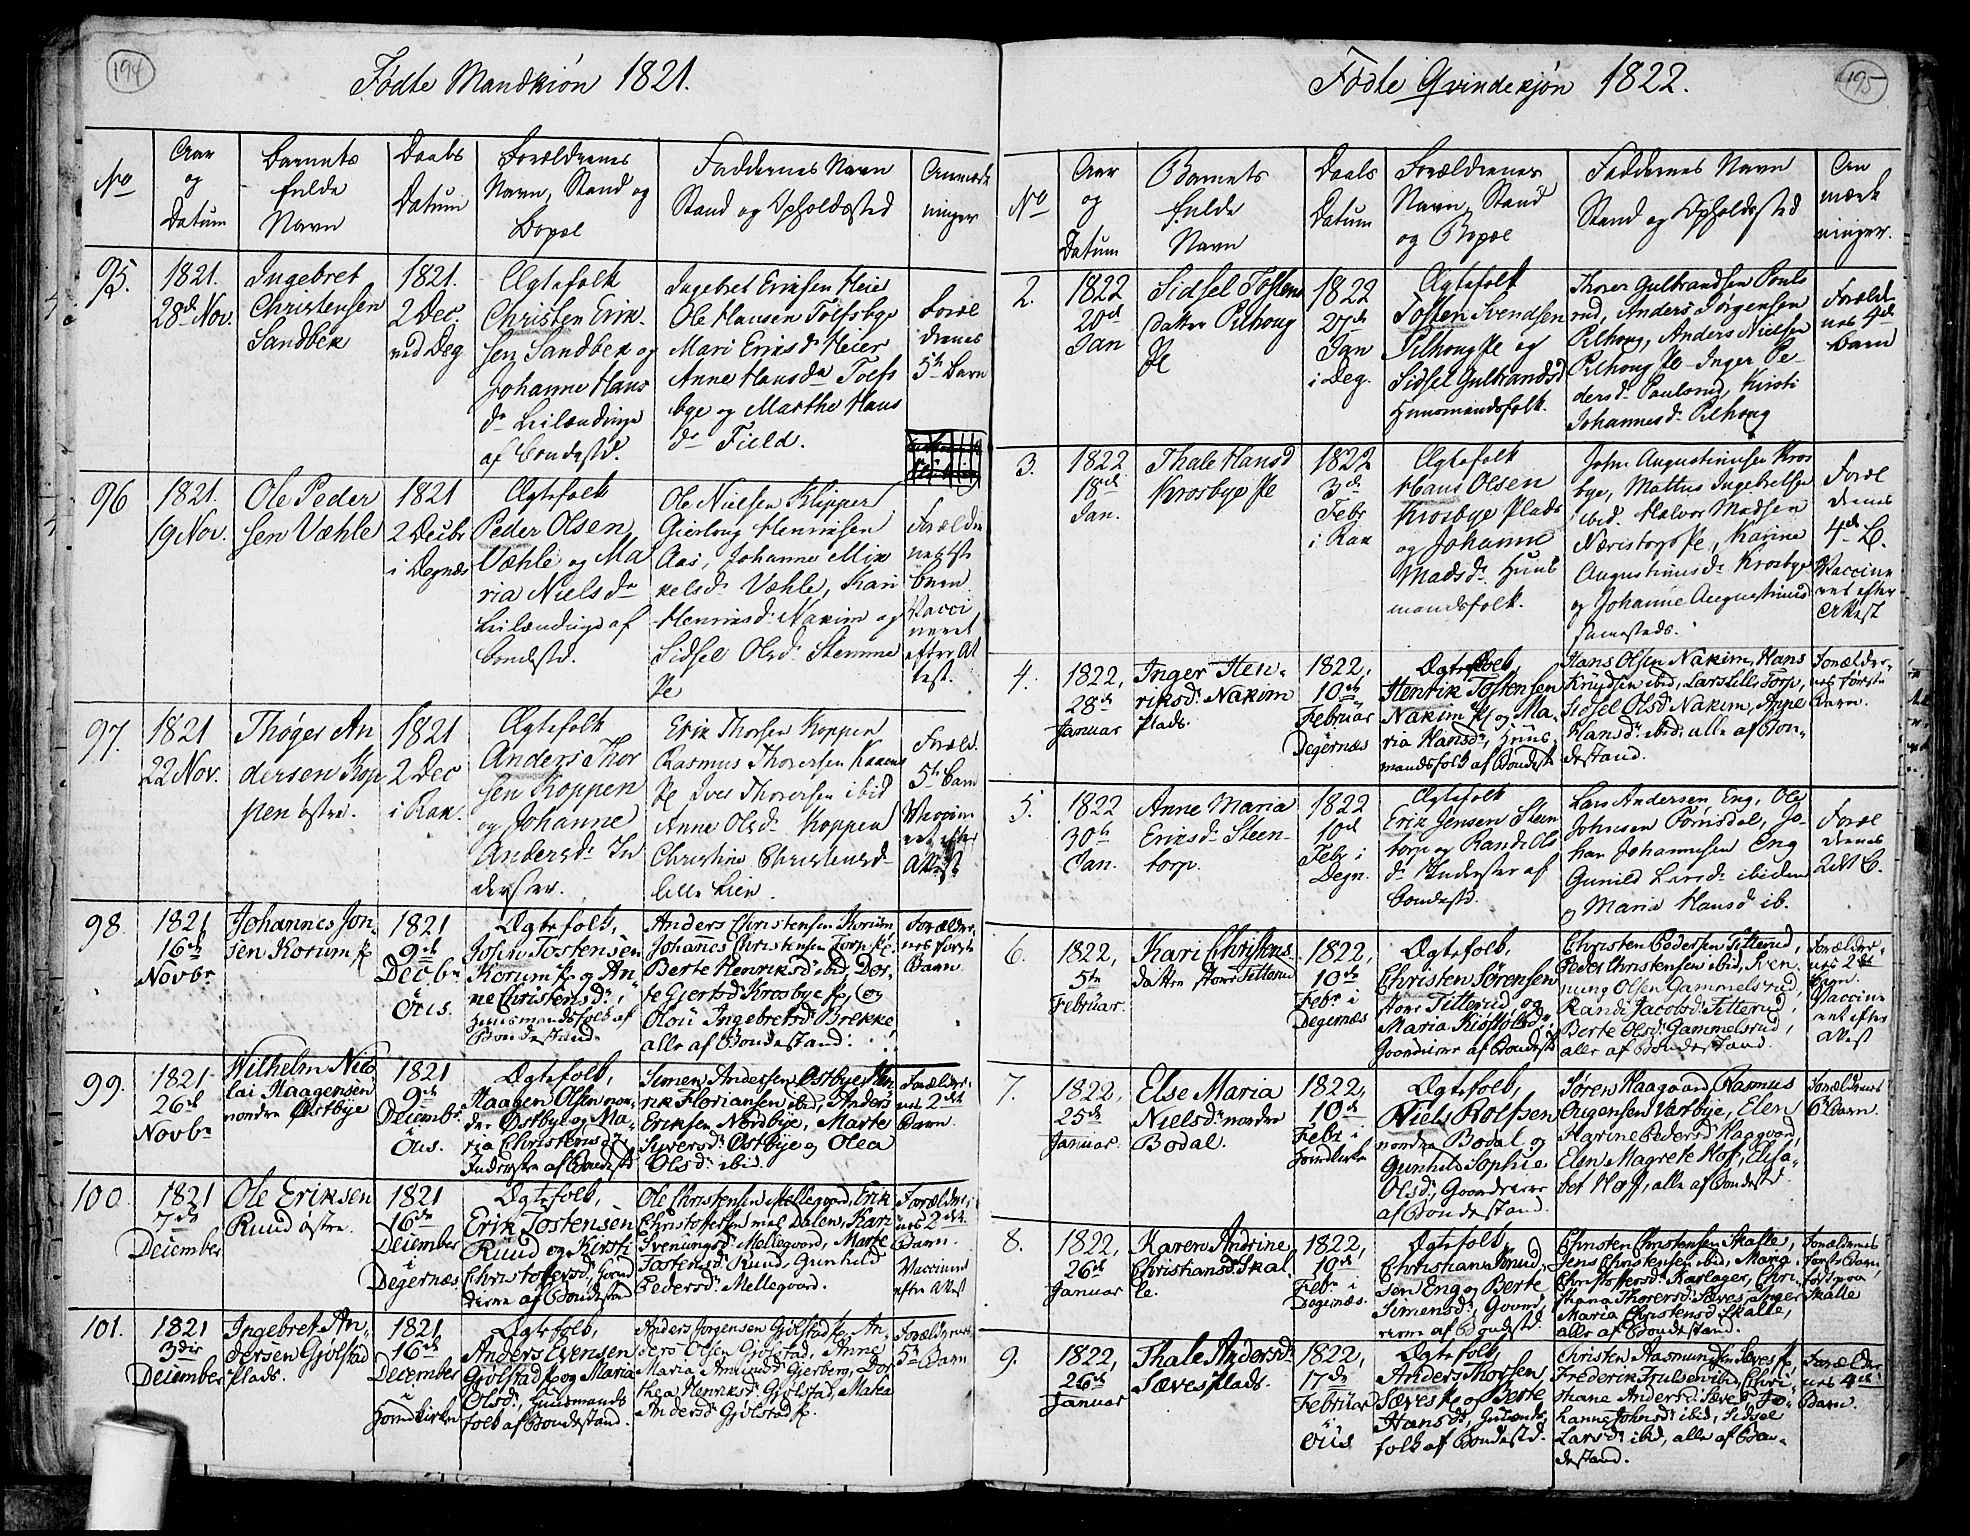 194
Fødte Mandkiön 1821.
No
Aar
og
Datum
Barnets
fulde
Navn
Daabs
Datum
Forældrenes
Navn, Stand og
Bopæl
Faddernes Navn
Stand og Opholdssted
Anmærk
ninger
95.
1821.
28de Nov.
Ingebret
Christensen
Sandbek
1821.
2 Dec.
ved Deg
Ægtefolk
Christen Erik-
sen Sandbek og
Johanne Hans
dr Leilændinge
af Bondestd.
Ingebret Eriksen Heier
Ole Hansen Tolfsbye
Mari Eriksdr Heier
Anne Hansdr Tolfs
bye og Marthe Hans
dr Field.
Foræl
drenes
5te Barn
96
1821.
19 Nov.
Ole Peder
sen Væhle
1821
2 Decbr
i Degnæs
Ægtefolk
Peder Olsen
Væhle og Ma
ria Nielsdr
Leilændinge af
Bondestd.
Ole Nielsen Klipper
Gierloug Henriksen
Aas, Johanne Mik
kelsdr Væhle, Kari
Henriksdr Nakim og
Sidsel Olsdr Stemme
Pl
Forældre
nes 1ste
barn
Vacci
neret
efter At
test.
97.
1821
22 Nov.
Thøger An
dersen Kop
pen østre.
1821
2 Dec
i Rak.
Ægtefolk
Anders Thor
sen Koppen
og Johanne
Andersdr In
derster.
Erik Thorsen Koppen
Rasmus Thorersen Kaaens
Pl Iver Thorersen ibid
Anne Olsdr Koppen
Christine Christensd
Lille Lien.
Foræld.
5te Barn
Vaccine
ret efter
Attest
98.
1821
16de
Novbr
Johannes Jon-
sen Korum Pl
1821
9de
Decbr
i
Øus.
Ægtefolk,
John Tostensen
Korum Pl og An-
ne Christensdr,
Huusmandsfolk af
Bondestand.
Anders Christensen Korum
Johanes Christensen Torp Pl.
Berte Henriksdr ibid, Dor-
te Giertsdr Krosbye Pl, og
Olou Ingebretsdr Brekke
alle af Bondestand.
Forældre-
nes første
Barn
99.
1821
26de
Novbr
Wilhelm Nico
lai Haagensen
nordre Østbye
1821
9de
Decembr
i
Øus.
Ægtefolk,
Haagen Olsen nor-
dre Østbye og Ma-
ria Christensdr
Inderster af Bondestd
Simen Andersen Østbye, Hen
rik Floriansen ibid, Anders
Eriksen Nordbye, Marte
Syversdr Østbye og Olea
Olsdr ibid.
Forældre-
nes 2det
Barn.
100.
1821
7de
December
Ole Eriksen
Ruud østre.
1821
16de
December
i
Degernæs
Ægtefolk,
Erik Tostensen
Ruud og Kirsti
Christophersdr, Gaard
eiere af Bondestand
Ole Christensen Mellegaard, Erik
Christophersen Dalen, Kari
Svenungsdr Mellegaard, Marte
Tostensdr Ruud, Gunhild
Pedersdr Mellegaard.
Forældre-
nes 2det
Barn.
Vaccineret
efter Attest
101.
1821
3die
December
Ingebret An-
dersen Gjølstad
Plads.
1821
16de
December
i
Hovedkirken
Ægtefolk,
Anders Evensen
Gjølstad Pl og Maria
Olsdr, Huusmands
folk af Bondestand.
Anders Jørgensen Gjølstad Pl, An-
ders Olsen Gjølstad, Anne
Maria Amundsdr Gjerberg, Dor
thea Henriksdr Gjølstad, Maria
Andersdr Gjølstad Pl.
Forældrenes
5te Barn
195
Fødte Qvindekjøn 1822.
No
Aar
og
Datum
Barnets
fulde
Navn
Daabs
Datum
Forældrenes
Navn, Stand
og Bopæl
Faddernes Navn
Stand og Opholdssted
An
mærk
ninger.
2.
1822
20de
Jan
Sidsel Tostens
datter Pilhoug
Pl
1822
27de
Jan
i Deg.
Ægtefolk
Tosten Svendsen
Pilhoug Pl og
Sidsel Gulbrandsd
Huusmandsfolk.
Thorer Gulbrandsen Pouls
rud, Anders Jørgensen
Pilhoug, Anders Nielsen
Pilhoug Pl. Inger Pe
dersdr Poulsrud, Kirsti
Johannesdr Pilhoug
Foreld
nes 4de
Barn
3.
1822
18de
Jan.
Thale Hansd
Krosbye Pl
1822
3de
Febr
i Rak
Ægtefolk
Hans Olsen
Krosbye Plads
og Johanne
Madsdr Huus
mandsfolk.
John Augustinusen Kros
bye, Mattus Ingebretsen
ibid. Halvor Madsen
Næristorp Pl, Karine
Augustinusdr Krosbye
og Johanne Augustinusd
samesteds.
Foræl
drenes
4de B.
Vaccine
ret efter
Attest
4.
1822,
28de
Januar
Inger Hen-
riksdr Nakim
Plads.
1822,
10de
Februar
Degernæs
Ægtefolk,
Henrik Tostensen
Nakim Pl og Ma-
ria Hansdr, Huus-
mandsfolk af Bondest
Hans Olsen Nakim, Hans
Knudsen ibid, Lars Lilletorp,
Sidsel Olsdr Nakim, Anne
Hansdr ibid, alle af Bon-
destand.
Forældre-
nes første
Barn.
5.
1822
30te
Jan.
Anne Maria
Eriksdr Steen-
torp.
1822
10de
Febr i
Degn.
Ægtefolk
Erik Jensen Steen
torp og Randi Ols
dr Inderster af
Bondestd.
Lars Andersen Eng, Ole
Johnsen Fornsdal, Jo-
han Johannesen Eng
Gunild Larsdr ibidem
og Maria Hansdr ib.
Foræl
drenes
2det B.
6.
1822,
5te
Februar.
Kari Christens
datter store Titterud
1822,
10de
Febr i
Degernæs
Ægtefolk,
Christen Sørensen
store Titterud og
Maria Kiøstolsdr,
Gaardeiere af Bondestd
Christen Pedersen Titterud,
Peder Christensen ibid, Sven-
nung Olsen Gammelsrud,
Randi Jacobsdr Titterud,
Berte Olsdr Gammelsrud,
alle af Bondestand.
Forældre-
nes 2det
Barn.
Vaccine
ret efter
Attest
7.
1822,
25de
Januar
Else Maria
Nielsdr nordre
Bodal.
1822,
10de
Febr i
Hovedkirke
Ægtefolk,
Niels Rolfsen
nordre Bodal og
Gunhild Sophie
Olsdr, Gaardeiere
af Bondestand.
Søren Haagaard, Rasmus
Børgensen Vestbye, Elen
Harine Pedersdr Haagaard,
Elen Magrete Hof, Elisa-
bet Hoff, alle af Bondestd
Forældrenes
6te Barn.
8.
1822,
26de
Januar
Karen Andrine
Christiansdr Skal
le.
1822,
10de
Febr i
Degernæs.
Ægtefolk,
Christian
sen Eng og Berte
Simensdr, Gaard-
eiere af Bondestd.
Christen Christensen Skalle,
Jens Christensen ibid, Maria
Christophersdr Karlager, Chri-
stiana Thorersdr Sæves, Inger
Maria Christensdr Skalle,
alle af Bondestand.
Forældrenes
første Barn,
født paa
Skalle
9.
1822,
26de
Januar
Thale Andersdr
Sæves Plads.
1822,
17de
Februar
i
Øus
Ægtefolk,
Anders Thorsen
Sæves Pl og Berte
Hansdr,
folk af Bondestd.
Christen Aasmundsen Sæves Pl,
Frederik Truelsen ibid, Chri-
stiane Andersdr Sæves, Jo-
hanne Johnsdr ibid, Sidsel
Larsdr ibid, alle af Bon-
destand.
Forældre-
nes 4de
Barn.